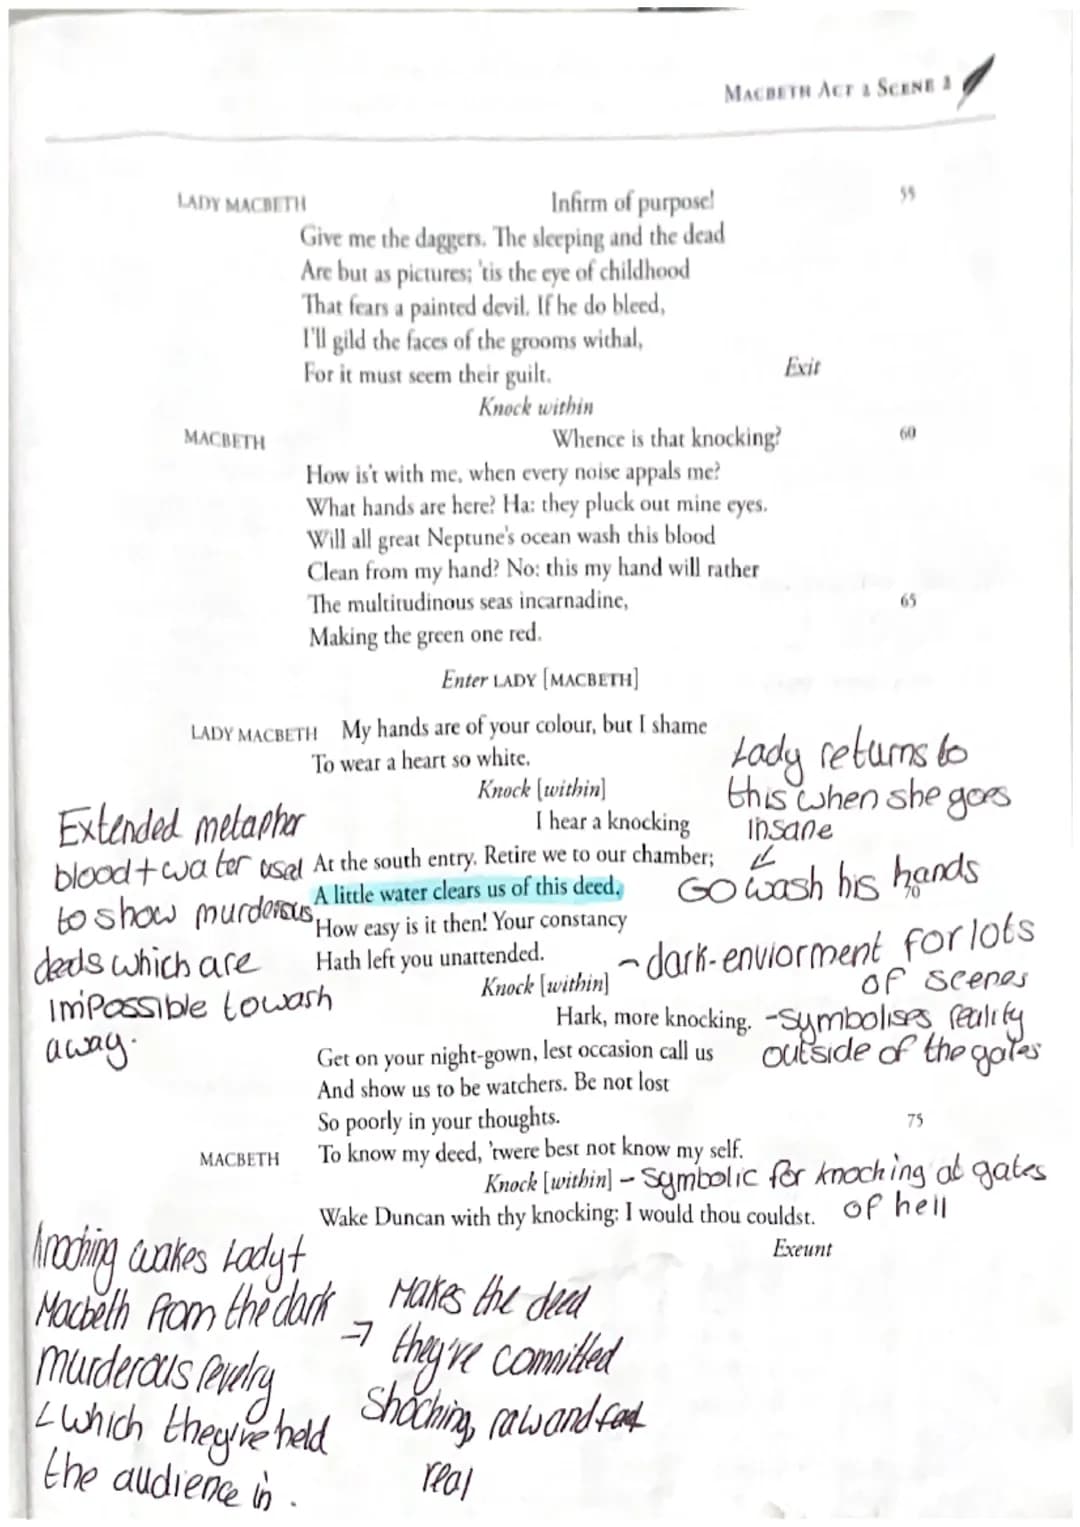 MACBETH ACT 2 SCENE 2
LADY MACBETH Infirm of purpose! 55
Give me the daggers. The sleeping and the dead
Are but as pictures; 'tis the eye of childhood
That fears a painted devil. If he do bleed,
I'll gild the faces of the grooms withal,
For it must seem their guilt. Exit
Knock within
MACBETH Whence is that knocking? 60
How is't with me, when every noise appals me?
What hands are here? Ha: they pluck out mine eyes.
Will all great Neptune's ocean wash this blood
Clean from my hand? No: this my hand will rather
The multitudinous seas incarnadine, 65
Making the green one red.
Enter LADY [MACBETH]
LADY MACBETH My hands are of your colour, but I shame
To wear a heart so white.
Knock [within]
I hear a knocking
At the south entry. Retire we to our chamber;
A little water clears us of this deed. 70
How easy is it then! Your constancy
Hath left you unattended.
Knock [within]
Hark, more knocking.
Get on your night-gown, lest occasion call us
And show us to be watchers. Be not lost
So poorly in your thoughts. 75
MACBETH To know my deed, 'twere best not know my self.
Knock [within]
Wake Duncan with thy knocking: I would thou couldst.
Exeunt
Lady returns to
this when she goes
insane
Go wash his hands
Extended metaphor
blood + water used
to show murderous
deeds which are
impossible to wash
away.
- dark-enviorment for lots
of scenes
- Symbolises reality
outside of the gates
- Symbolic for knocking at gates
of hell
knocking wakes Lady +
Macbeth from the dark
murderous revelry
which they've held
the audience in.
→ Makes the deed
they've committed
Shocking, raw and
real